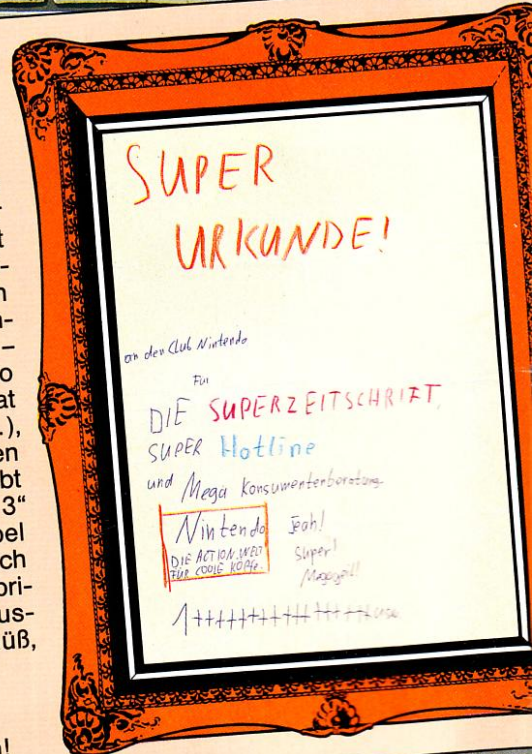 t
-
n
n-
–
o
at
.),
en
bt
3“
bel
ch
ori-
us-
üß,
!
SUPER
URKUNDE!
an den Club Nintendo
Für
DIE SUPERZEITSCHRIFT,
SUPER Hotline
und Mega Konsumentenberatung
Nintendo
DIE ACTION-WELT
FÜR COOLE KÖPFE.
Jeah!
Super!
Megageil!
1++++++++++++++++usw.